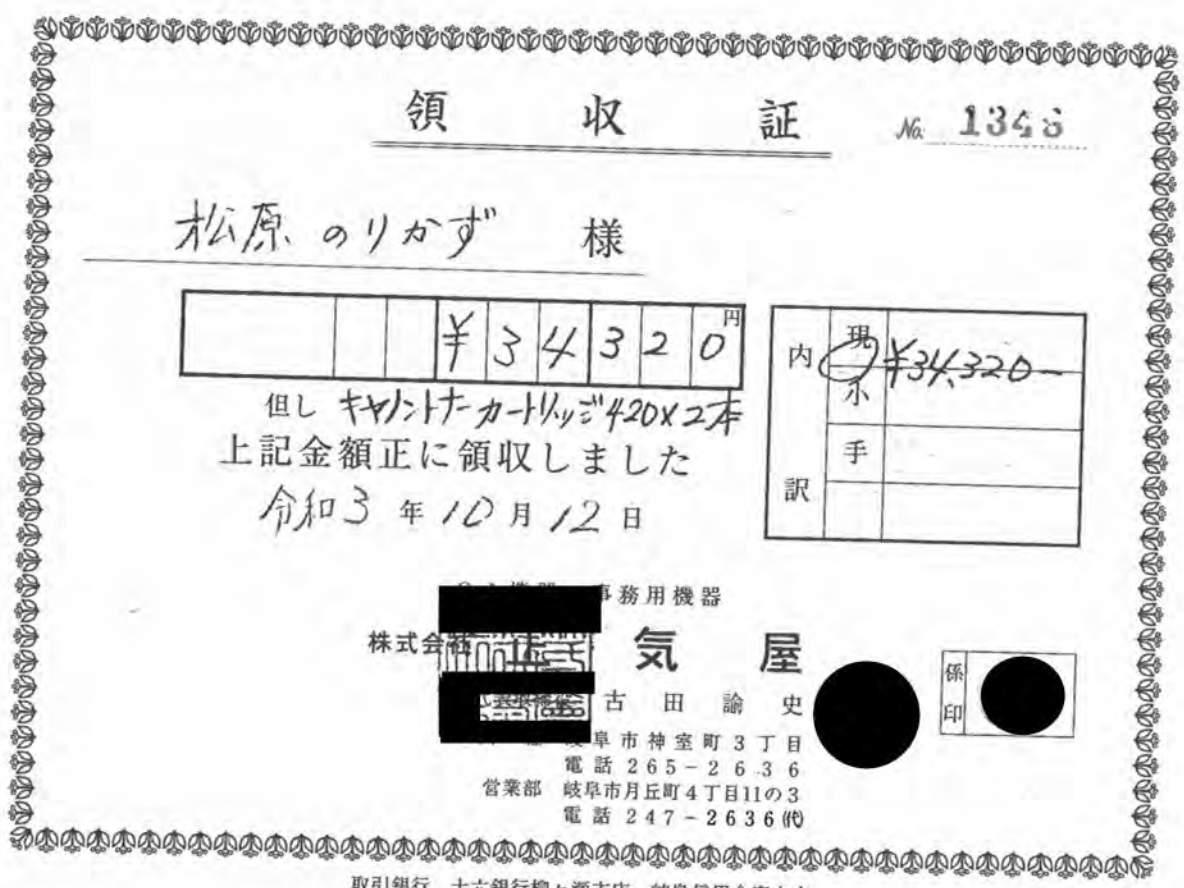 領収証 No. 134
松原 のりかず 様
¥34320円
但し キヤノントナーカートリッジ420×2本
上記金額正に領収しました
令和3年10月12日
内訳
現 ¥34,320-
小
手
事務用機器
株式会社 正気屋
古田諭史
岐阜市神室町3丁目
電話 265-2636
営業部 岐阜市月丘町4丁目11の3
電話 247-2636(代)
係印
取引銀行 十六銀行柳ヶ瀬支店